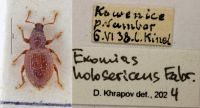 Kowenice
p. Sambor
6.VI 38. l. Kinel
Exomias
holosericeus Fabr.
D. Khrapov det., 2024